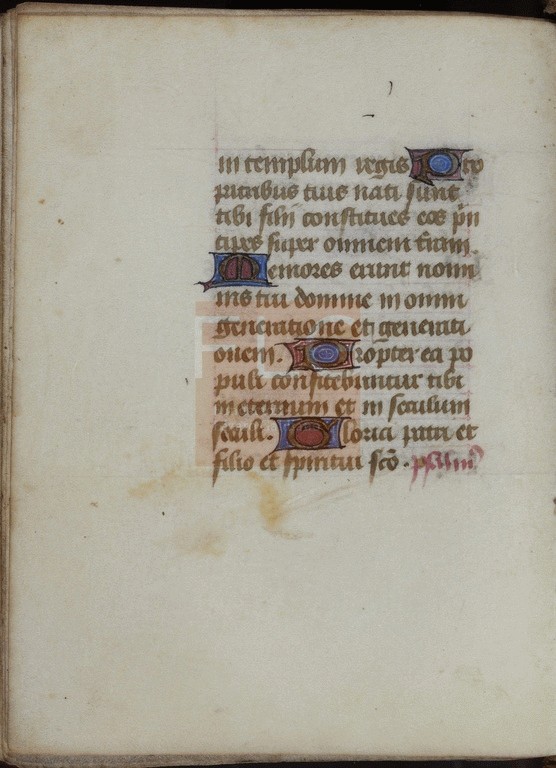 in templum regis Pro
patribus tuis nati sunt
tibi filij constitues eos pͥn
cipes super omnem t̃ram.
Memores erunt nomi
nis tui domine in omni
generatione et generati
onem. Propter ea po
puli confitebuntur tibi
in eternum et in seculum
seculi. Gloria patri et
filio et spiritui sc̃o. psalmꝰ